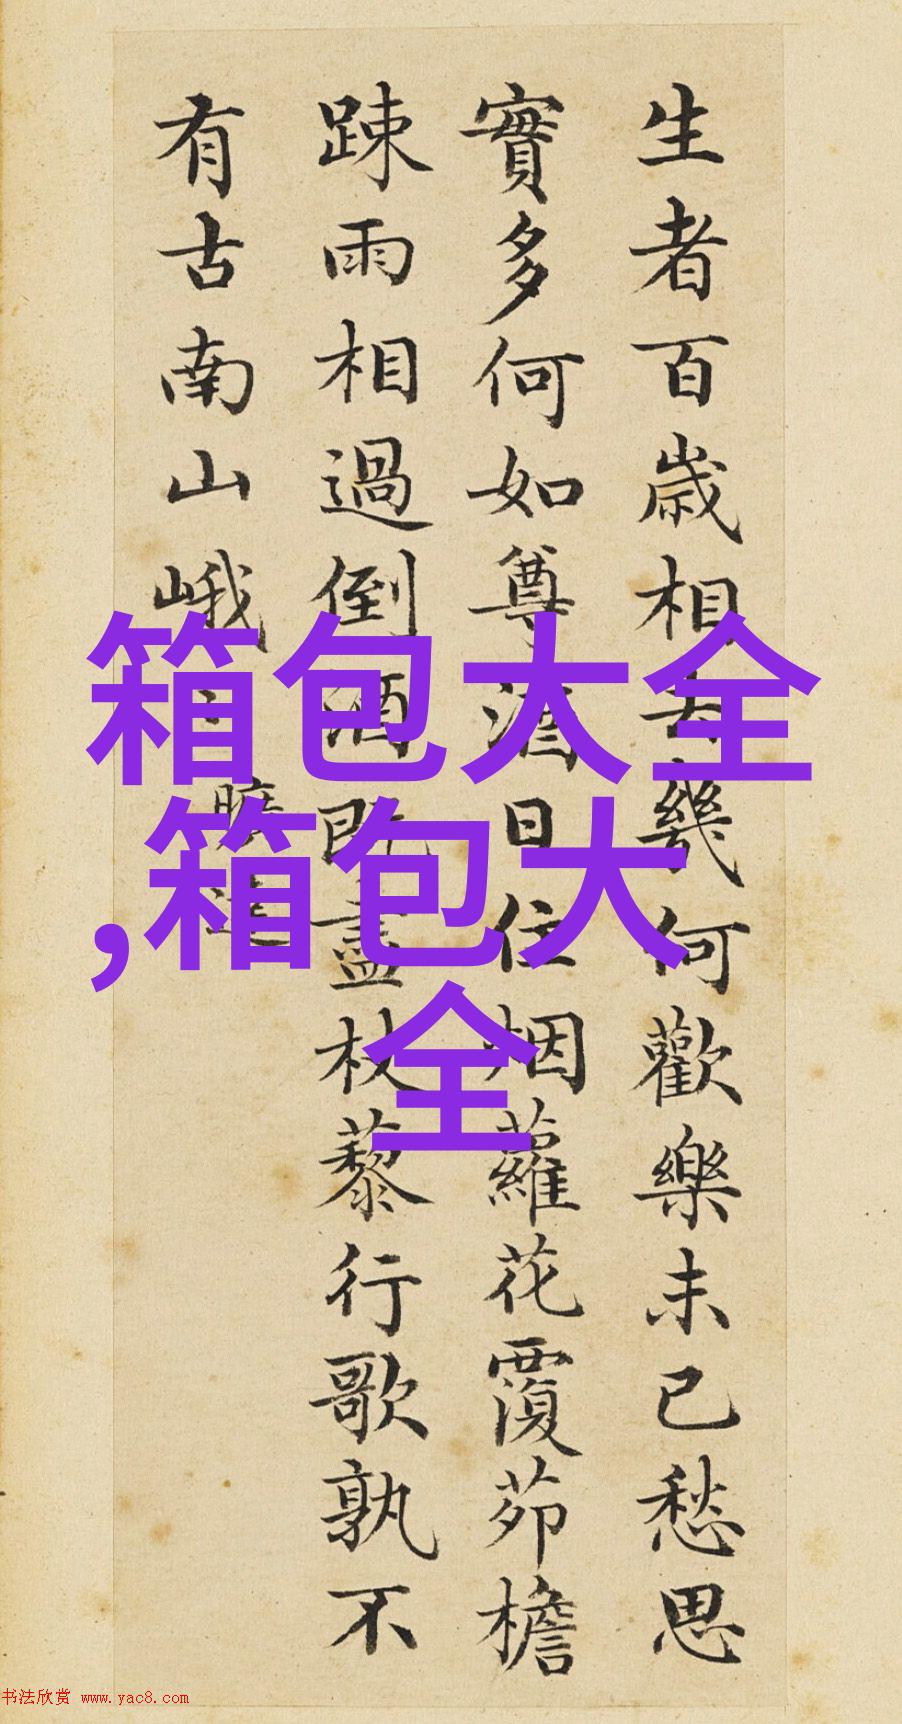 生者百歲相去幾何歡樂未已愁思
實多何如尊酒日往烟蘿花覆茆檐
踈雨相過倒酒既盡杖藜行歌孰不
有古南山峨
曠達
箱包大全
,箱包大
全
书法欣赏 www.yac8.com